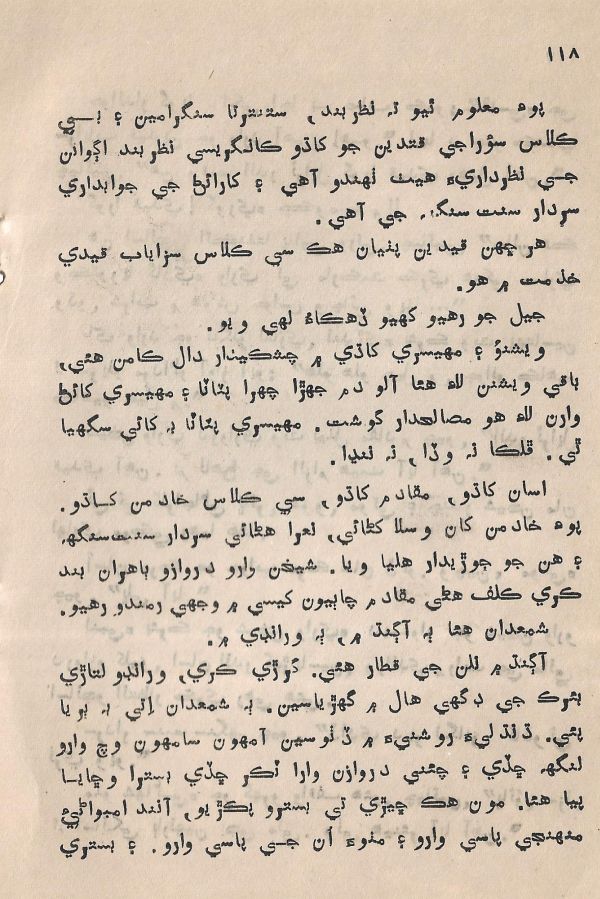 ١١٨
پوءِ معلوم ٿيو تہ نظربند، ستنترتا سنگرامين ۽ بــي
ڪلاس سؤراجي قيدين جو کاڌو ڪانگريسي نظربند اڳواڻن
جــي نظرداريءَ هيٺ ٺهندو آهي ۽ کارائڻ جي جوابداري
سردار سنت سنگهہ جي آهي.
هر ڇهن قيدين پٺيان هڪ سي ڪلاس سزاياب قيدي
خدمت ۾ هو.
جيل جو رهيو کهيو ڏهڪاءُ لهي ويو.
ويشنؤ ۽ مهيسري کاڌي ۾ چشڪيدار دال ڪامن هئي،
باقي ويشنن لاءِ هئا آلو دم جهڙا چهرا پٽاٽا ۽ مهيسري کائڻ
وارن لاءِ هو مصالحدار گوشت. مهيسري پٽاٽا بہ کائي سگهيا
ٿي. ڦلڪا نہ وڏا، نہ ننڍا.
اسان کاڌو، مقادم کاڌو، سي ڪلاس خادمن کــاڌو.
پوءِ خادمن کان وسلا کڻائي، نعرا هڻائي سردار سنت‌سنگهہ
۽ هن جو جوڙيدار هليا ويا. شيخن وارو دروازو ٻاهران بند
ڪري ڪلف هڻي مقادم چاٻيون کيسي ۾ وجهي رمندو رهيو.
شمعدان هئا ٻہ آڳنڌ ۾، ٻہ ورانڊي ۾.
آڳنڌ ۾ نلن جي قطار هئي. گرڙي ڪري، ورانڊو لتاڙي
بئرڪ جي ڊگهي هال ۾ گهڙياسين. ٻہ شمعدان اِتي بہ ٻريا
پئي. ڌنڌليءَ روشنيءَ ۾ ڏٺوسين آمهون سامهون وچ وارو
لنگهہ ڇڏي ۽ چئني دروازن وارا ٽڪر ڇڏي بسترا وڇايــا
پيا هئا. مون هڪ ڇيڙي تي بسترو پڪڙيو، آنند امبواڻيءَ
منهنجي پاسي وارو ۽ منوءَ اُن جــي پاسي وارو. ۽ بستري